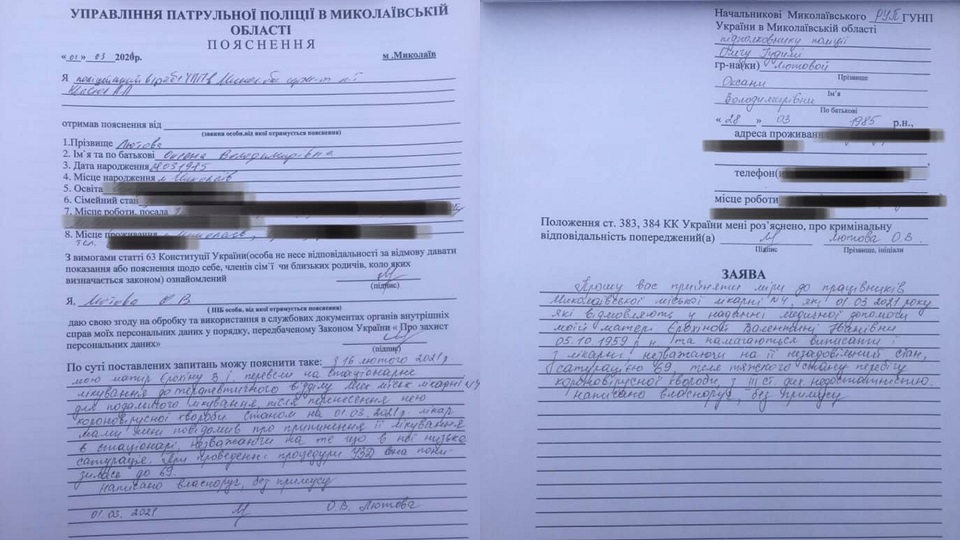 УПРАВЛІННЯ ПАТРУЛЬНОЇ ПОЛІЦІЇ В МИКОЛАЇВСЬКІЙ
ОБЛАСТІ
ПОЯСНЕННЯ
«01» 03 2021р. м .Миколаїв
Я
отримав пояснення від
(звання особи,від якої отримується пояснення)
1.Прізвище Лютова
2. Ім`я та по батькові Оксана Володимирівна
3. Дата народження 28.03.1985
4. Місце народження м. Миколаїв
5. Освіта
6. Сімейний стан
7. Місце роботи, посада
8. Місце проживання м. Миколаїв,
тел.
З вимогами статті 63 Конституції України(особа не несе відповідальності за відмову давати
показання або пояснення щодо себе, членів сім`ї чи близьких родичів, коло яких
визначається законом) ознайомлений
(підпис)
Я, Лютова О В
( ПІБ особи від якої отримується пояснення)
даю свою згоду на обробку та використання в службових документах органів внутрішніх
справ моїх персональних даних у порядку, передбаченому Законом України « Про захист
персональних даних»
(підпис)
По суті поставлених запитань можу пояснити таке: З 16 лютого 2021 р
мою матір Єрохіну В І перевели на стаціонарне
лікування до терапевтичного відділу Мик міськ лікарні №4
для подальшого лікування, після перенесення нею
короновірусної хвороби. Станом на 01.03.2021р. лікар
мами мені повідомив про припинення її лікування
в стаціонарі, незважаючи на те що в неї низька
сатурація. При проведенні процедури УЗД вона пони-
зилась до 69.
Написано власноруч, без примусу
01.03.2021 О.В. Лютова
Начальникові Миколаївського РУП ГУНП
України в Миколаївській області
підполковнику поліції
Олегу
гр-на(ки) Лютової
Прізвище
Оксани
Ім'я
Володимирівни
По батькові
« 28 » 03 1985 р.н.,
адреса проживання
телефон(и
місце роботи
Положення ст. 383, 384 КК України мені роз'яснено, про кримінальну
відповідальність попереджений(а) Лютова О.В.
Підпис Прізвище, ініціали
ЗАЯВА
Прошу вас прийняти міри до працівників
Миколаївської міської лікарні №4, які 01.03.2021 року
які відмовляють у наданні медичної допомоги
моїй матері Єрохіной Валентині Іванівни
05.10.1959 р.н. Та намагаються виписати її
з лікарні незважаючи на її незадовільний стан,
сатурацією 69, після тяжкого стану перебігу
короновірусної хвороби, з III ст. дих недостатністю.
Написано власноруч, без примусу